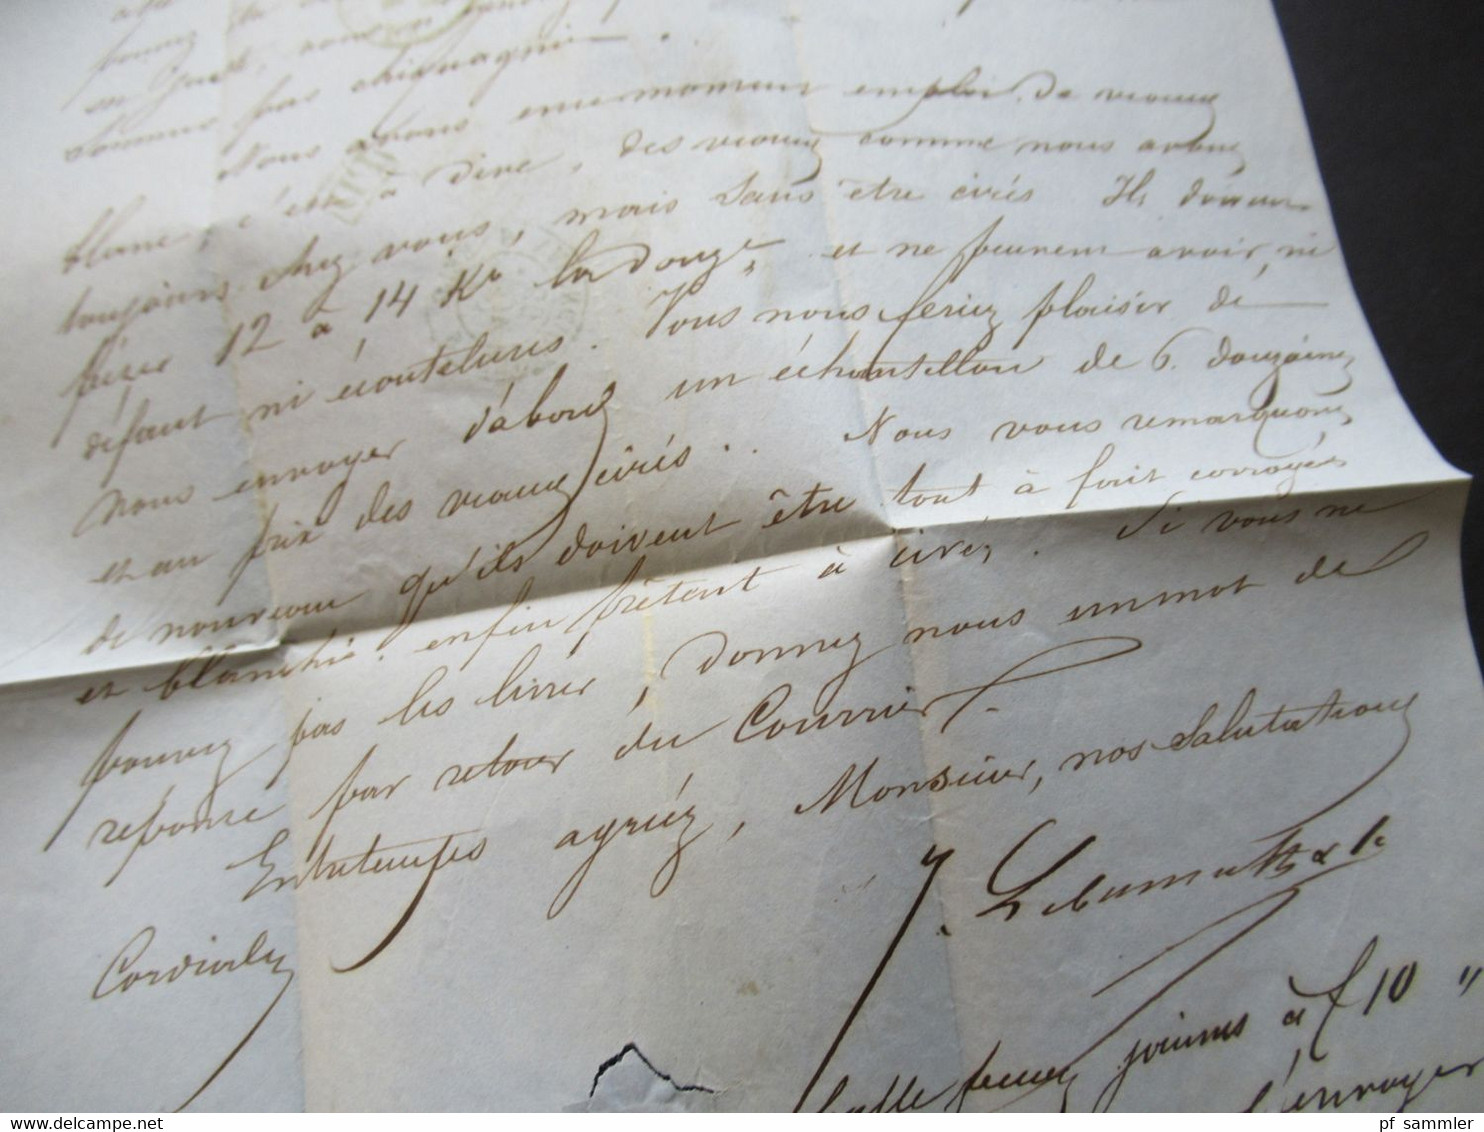 sommes pas
Nous avons en ce moment emploi de veaux
blancs, c'est à dire, des veaux comme nous avons
toujours chez vous, mais sans être cirés Ils doivent
peser 12 à 14 Ko la douz.e, et ne peuvent avoir, ni
défaut ni écoutelures. Vous nous feriez plaisir de
nous envoyer d'abord un échantillon de 6 douzaines
et au prix des veaux cirés. Nous vous remarquons
de nouveau qu'ils doivent être tout à fait corroyés
et blanchis. enfin prêtent à cirer. Si vous ne
pouvez pas les livrer, donnez nous un mot de
réponse par retour du Courrier.
Entretemps agréez, Monsieur, nos salutations
Cordiales
jaunes à f 10 "
envoyer
pf_sammler